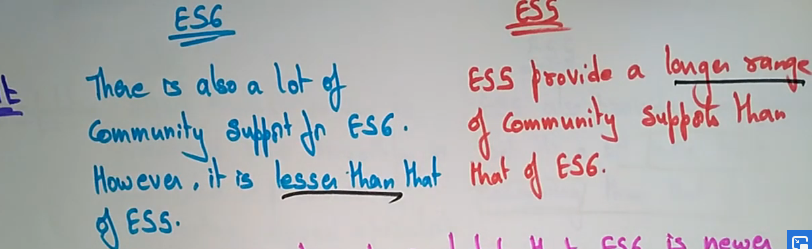 ES6
ES5
There is also a lot of
Community Support for ES6.
However, it is lesser than that
of ES5.
ES5 provide a longer range
of Community Supports than
that of ES6.
ES6 is newer